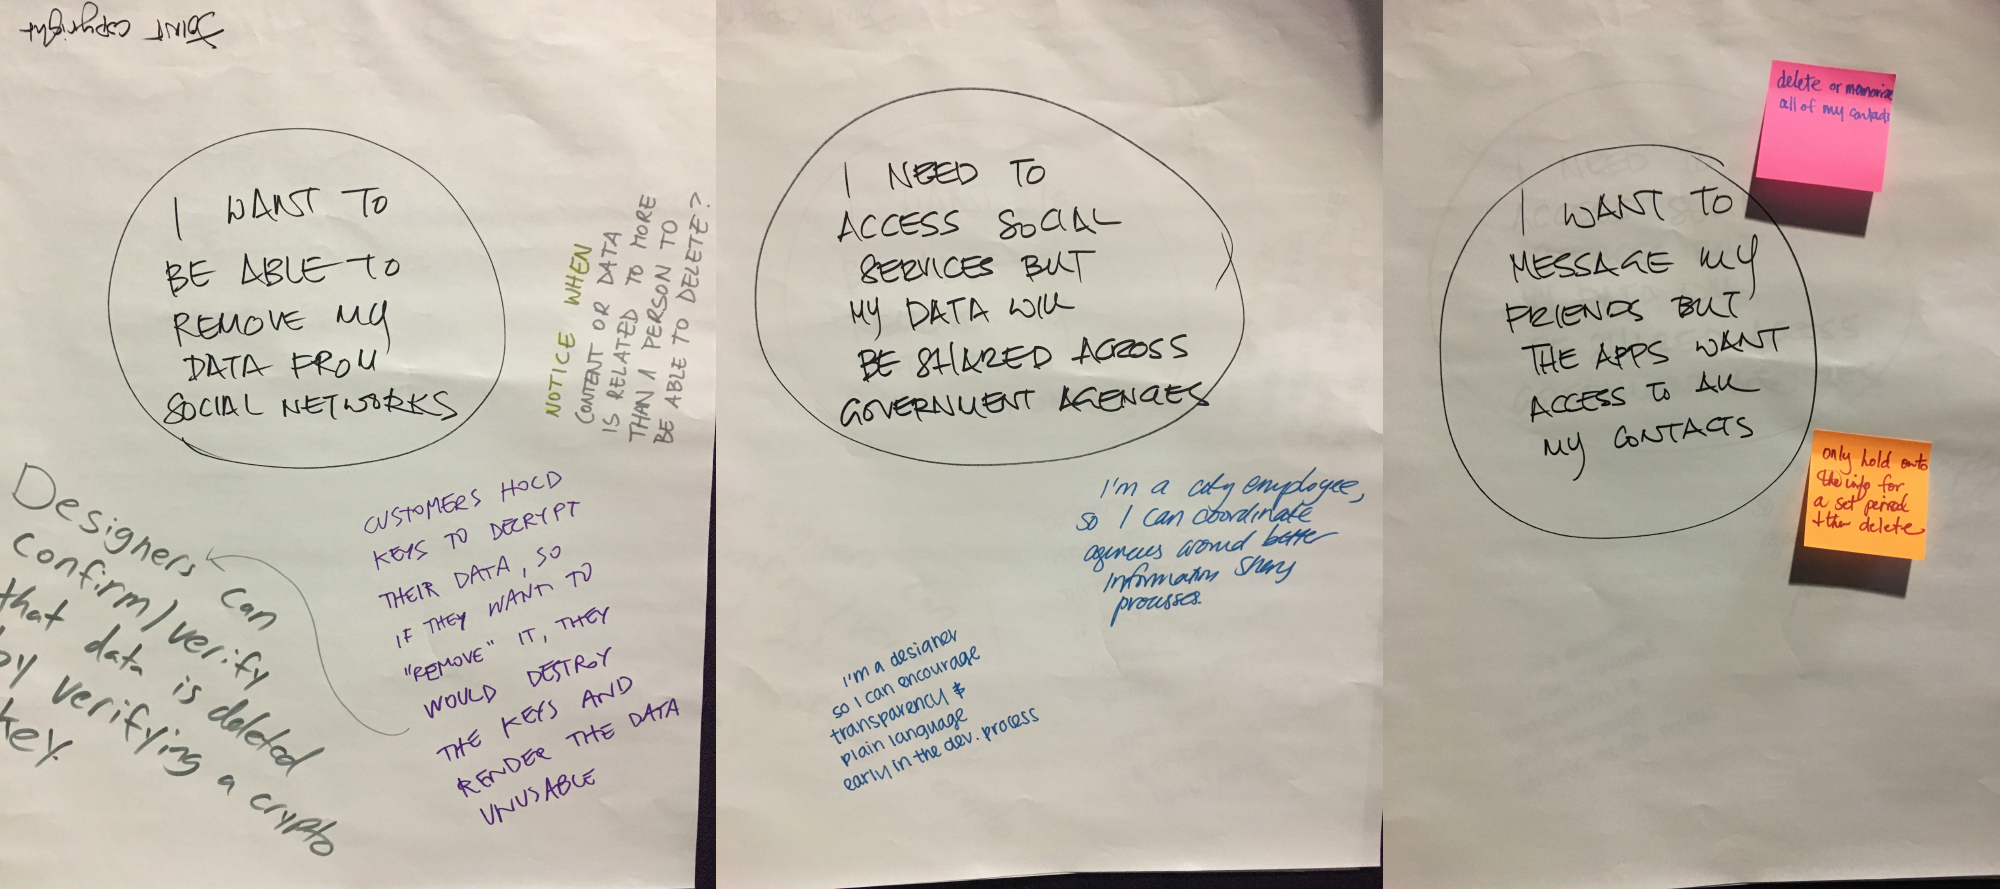 JOINT copyright
I WANT TO
BE ABLE TO
REMOVE MY
DATA FROM
SOCIAL NETWORKS
NOTICE WHEN
CONTENT OR DATA
IS RELATED TO MORE
THAN 1 PERSON TO
BE ABLE TO DELETE?
Designers can
confirm/verify
that data is deleted
by verifying a crypto
key.
CUSTOMERS HOLD
KEYS TO DECRYPT
THEIR DATA, SO
IF THEY WANT TO
"REMOVE" IT, THEY
WOULD DESTROY
THE KEYS AND
RENDER THE DATA
UNUSABLE
I NEED TO
ACCESS SOCIAL
SERVICES BUT
MY DATA WILL
BE SHARED ACROSS
GOVERNMENT AGENCIES
I'm a city employee,
so I can coordinate
agencies around better
information sharing
processes.
I'm a designer
so I can encourage
transparency &
plain language
early in the dev. process
I WANT TO
MESSAGE MY
FRIENDS BUT
THE APPS WANT
ACCESS TO ALL
MY CONTACTS
delete or memorize
all of my contacts
only hold onto
the info for
a set period
+ then delete